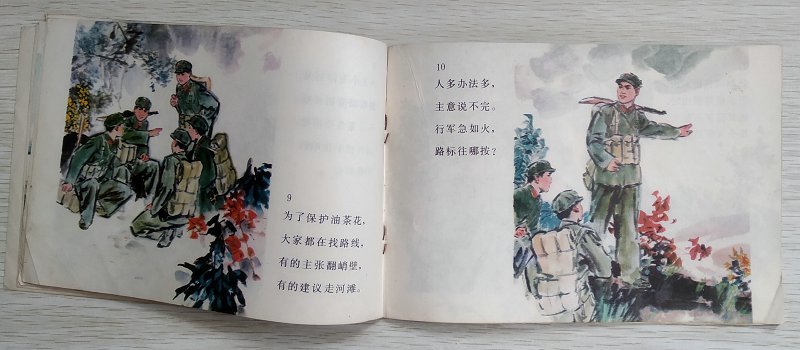 9
为了保护油茶花，
大家都在找路线，
有的主张翻峭壁，
有的建议走河滩。
10
人多办法多，
主意说不完。
行军急如火，
路标往哪按？